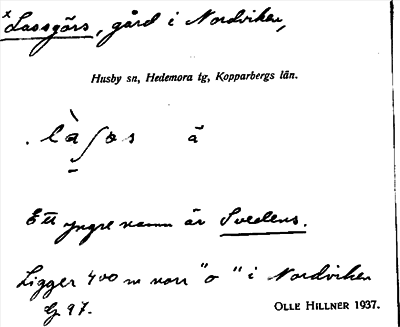 x Lassgörs, gård i Nordviken,
Husby sn, Hedemora tg, Kopparbergs län.
. làʃǫs å
Ett yngre namn är Svedens.
Ligger 400 m norr "o" i Nordviken
G 97.
OLLE HILLNER 1937.